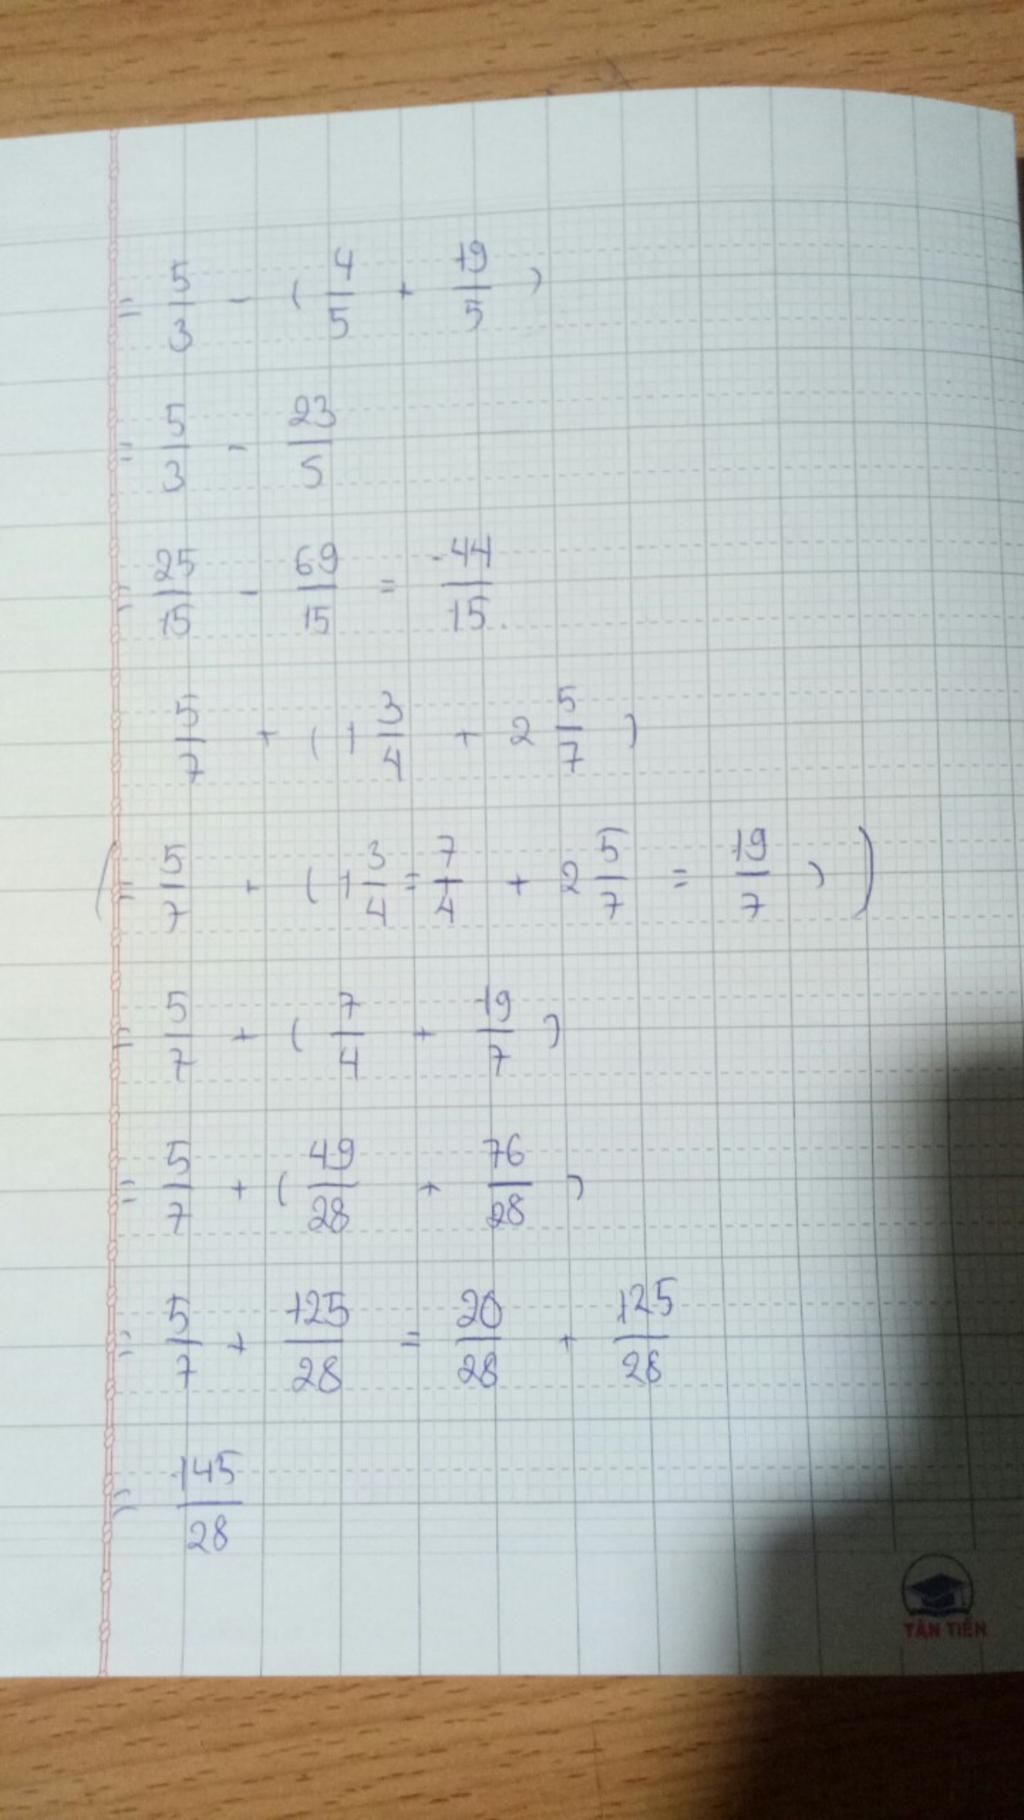 = 5/3 - ( 4/5 + 19/5 )
= 5/3 - 23/5
= 25/15 - 69/15 = -44/15.
5/7 + ( 1 3/4 + 2 5/7 )
( = 5/7 + ( 1 3/4 = 7/4 + 2 5/7 = 19/7 ) )
= 5/7 + ( 7/4 + 19/7 )
= 5/7 + ( 49/28 + 76/28 )
= 5/7 + 125/28 = 20/28 + 125/28
= 145/28
TÂN TIẾN